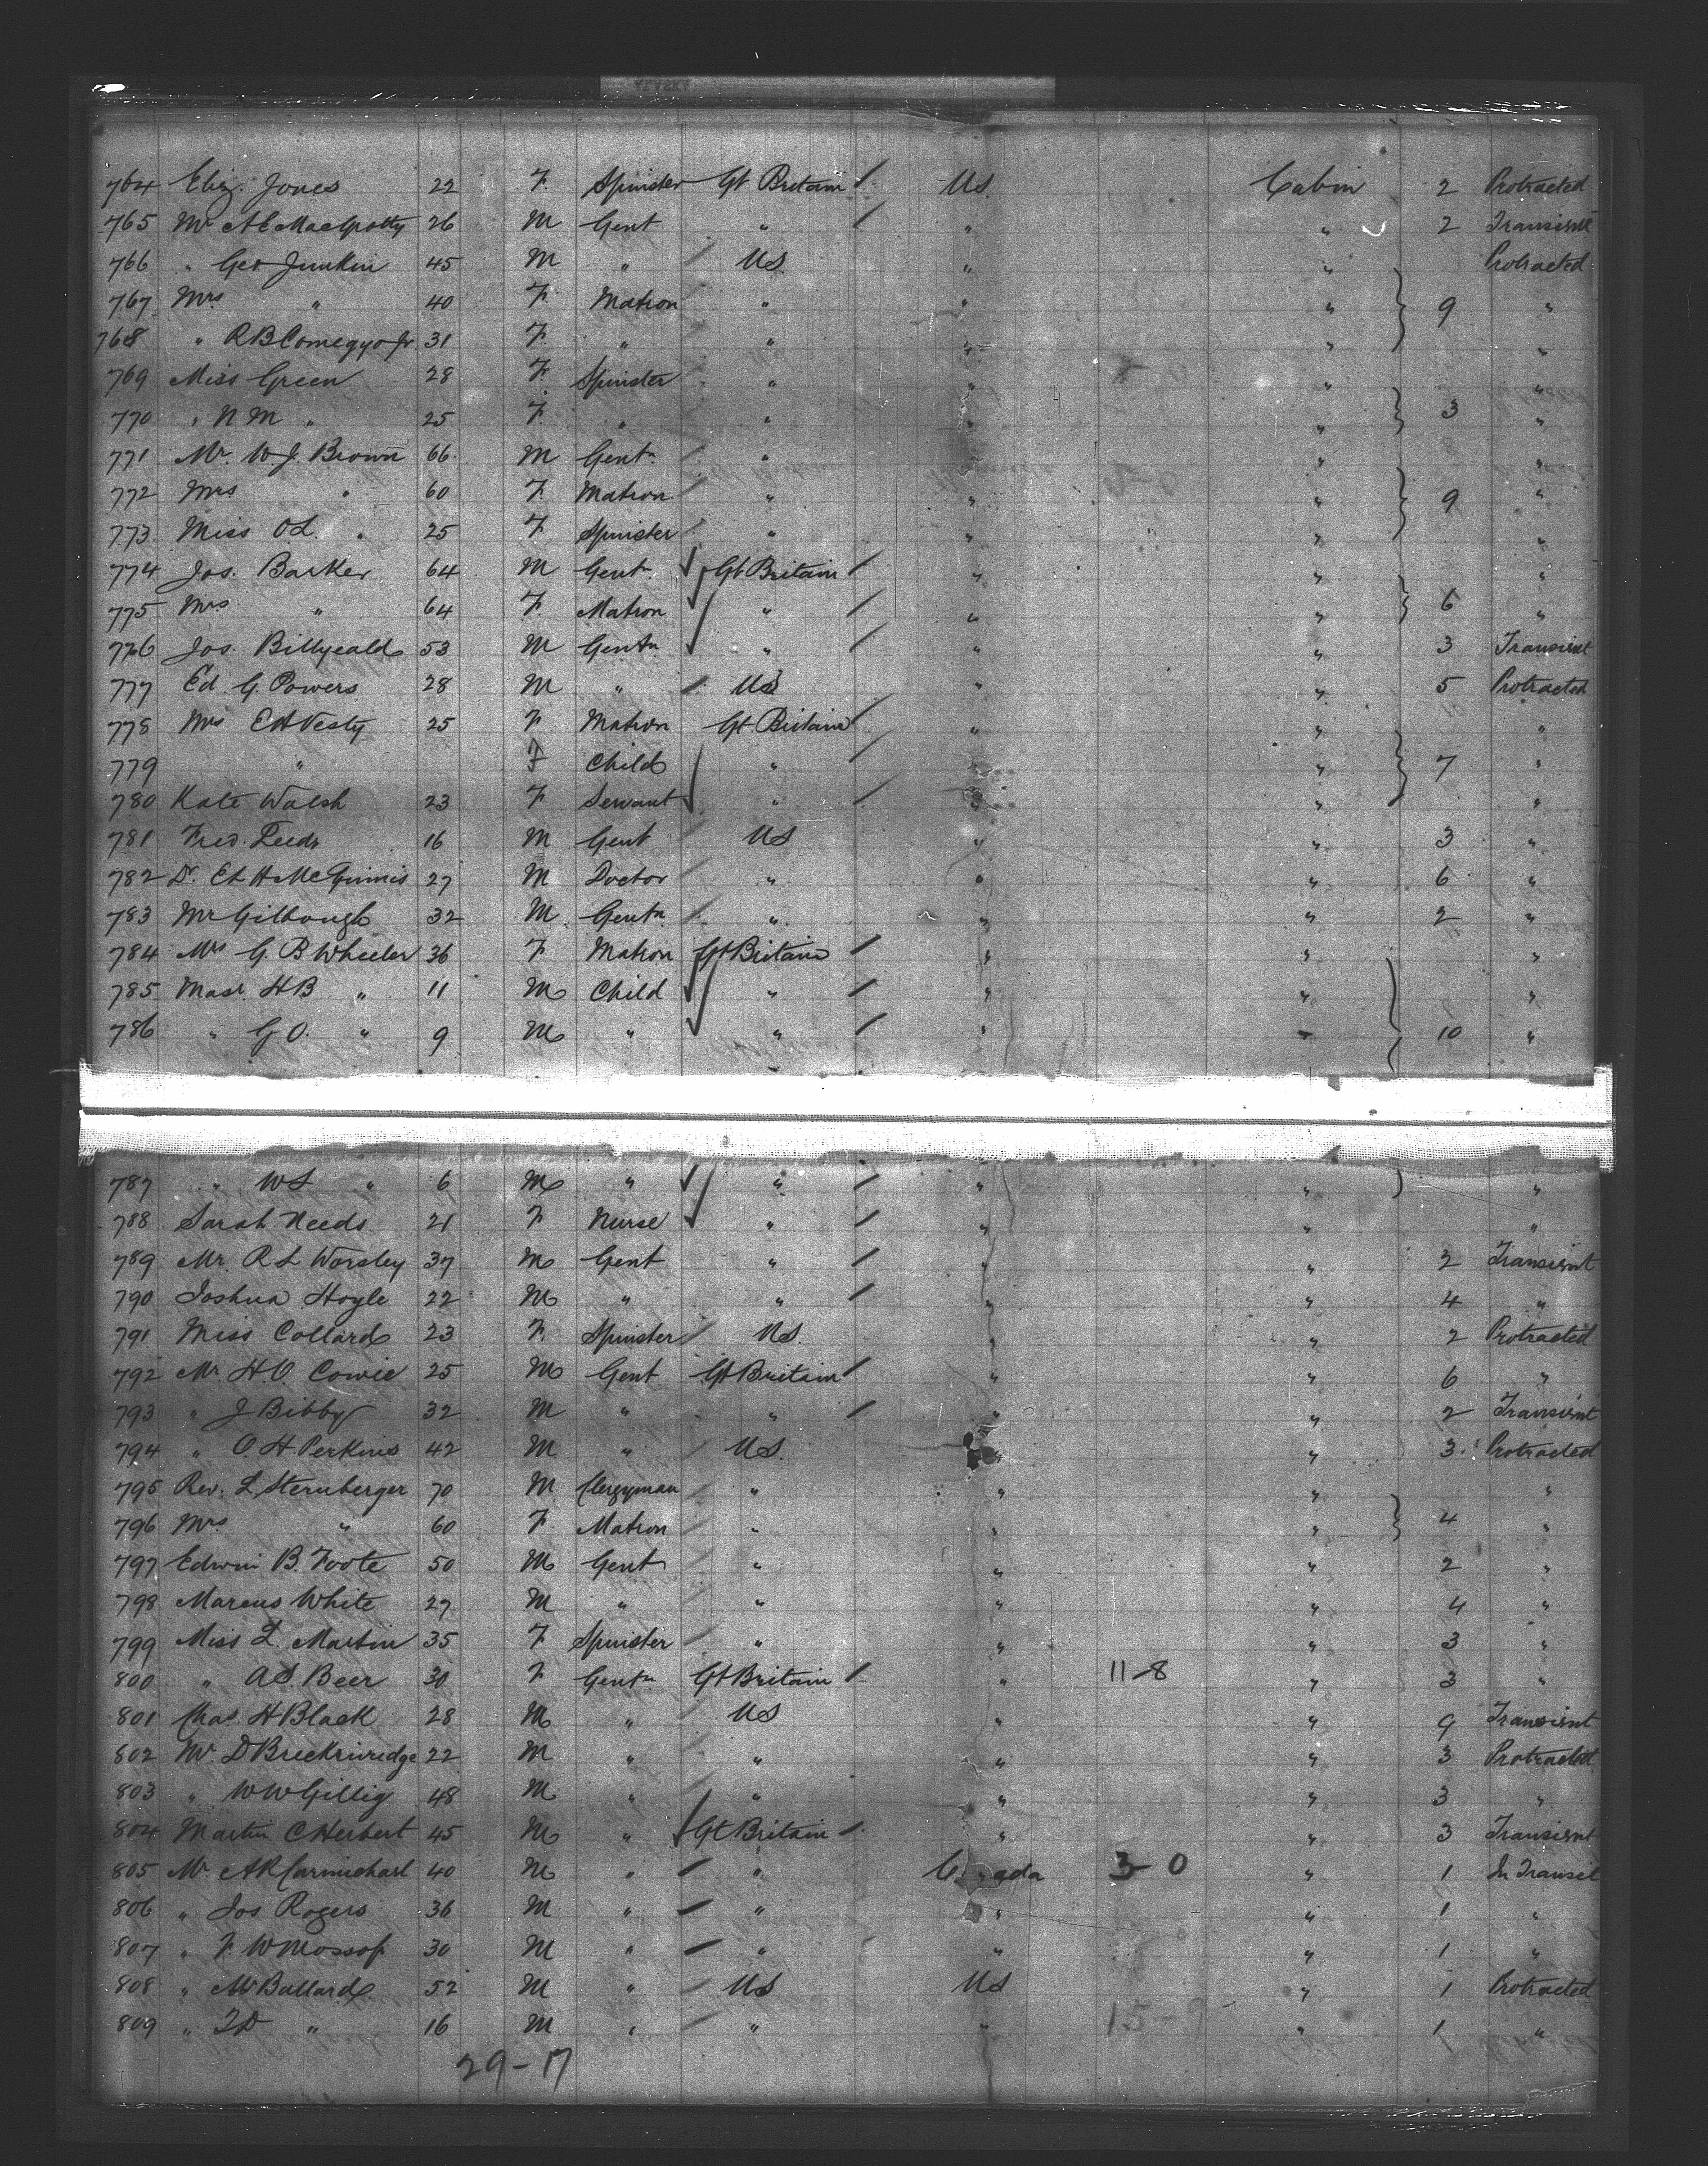 764 Eliz. Jones 22 F. Spinster Gt Britain / US. Cabin 2 Protracted
765 Mr A E MacGrotty 26 M Gent " / " " 2 Transient
766 " Geo Junkin 45 M " / US. " " Protracted
767 Mrs " 40 F. Matron / " " " 9 "
768 " R B Comegys Jr. 31 F. " / " " " "
769 Miss Green 28 F. Spinster / " " " "
770 " N M " 25 F. " / " " " 3 "
771 Mr. W. J. Brown 66 M Gentn / " " " "
772 Mrs " 60 F. Matron / " " " 9 "
773 Miss O L. " 25 F Spinster / " " " "
774 Jos. Barker 64 M Gentn Gt Britain / " " "
775 Mrs " 64 F. Matron " / " " 6 "
776 Jos. Billyeald 53 M Gentn " / " " 3 Transient
777 Ed. G. Powers 28 M " / US " " 5 Protracted
778 Mrs E A Vesty 25 F Matron Gt Britain / " " "
779 " F Child " / " " 7 "
780 Kate Walsh 23 F. Servant " / " " "
781 Fred. Leeds 16 M Gent / US " " 3 "
782 Dr. McGinnis 27 M Doctor / " " " 6 "
783 Mr Gilbough 32 M. Gentn / " " " 2 "
784 Mrs G. B Wheeler 36 F Matron Gt Britain / " " "
785 Masr. H B " 11 M Child " / " " "
786 " G O. " 9 M " " / " " 10 "
787 " W S " 6 M " " / " " "
788 Sarah Needs 21 F Nurse " / " " "
789 Mr. R L Worsley 37 M Gent " / " " 2 Transient
790 Joshua Hoyle 22 M " " / " " 4 "
791 Miss Collard 23 F. Spinster / US. " " 2 Protracted
792 Mr. H. O. Cowie 25 M Gent Gt Britain / " " 6 "
793 " J Bibby 32 M " " / " " 2 Transient
794 " O. H Perkins 42 M " / US. " 3 Protracted
795 Rev. L. Sternberger 70 M Clergyman / " " " "
796 Mrs " 60 F. Matron / " " " 4 "
797 Edwin B. Foote 50 M Gent / " " " 2 "
798 Marcus White 27 M " / " " " 4 "
799 Miss L. Martin 35 F Spinster / " " " 3 "
800 " A S Beer 30 F Gentn Gt Britain / " 11-8 " 3 "
801 Chas. H Black 28 M " / US " " 9 Transient
802 Mr. D Breckinridge 22 M " / " " " 3 Protracted
803 " W W Gillig 48 M " / " " " 3 "
804 Martin C Herbert 45 M " Gt Britain / " " 3 Transient
805 Mr A R Carmichael 40 M " / " Canada 3-0 " 1 In Transit
806 " Jos Rogers 36 M " / " " " 1 "
807 " F. W Mossop 30 M " / " " " 1 "
808 " Ballard 52 M " / US US " 1 Protracted
809 " " 16 M " / " " 15-9 " 1 "
29-17